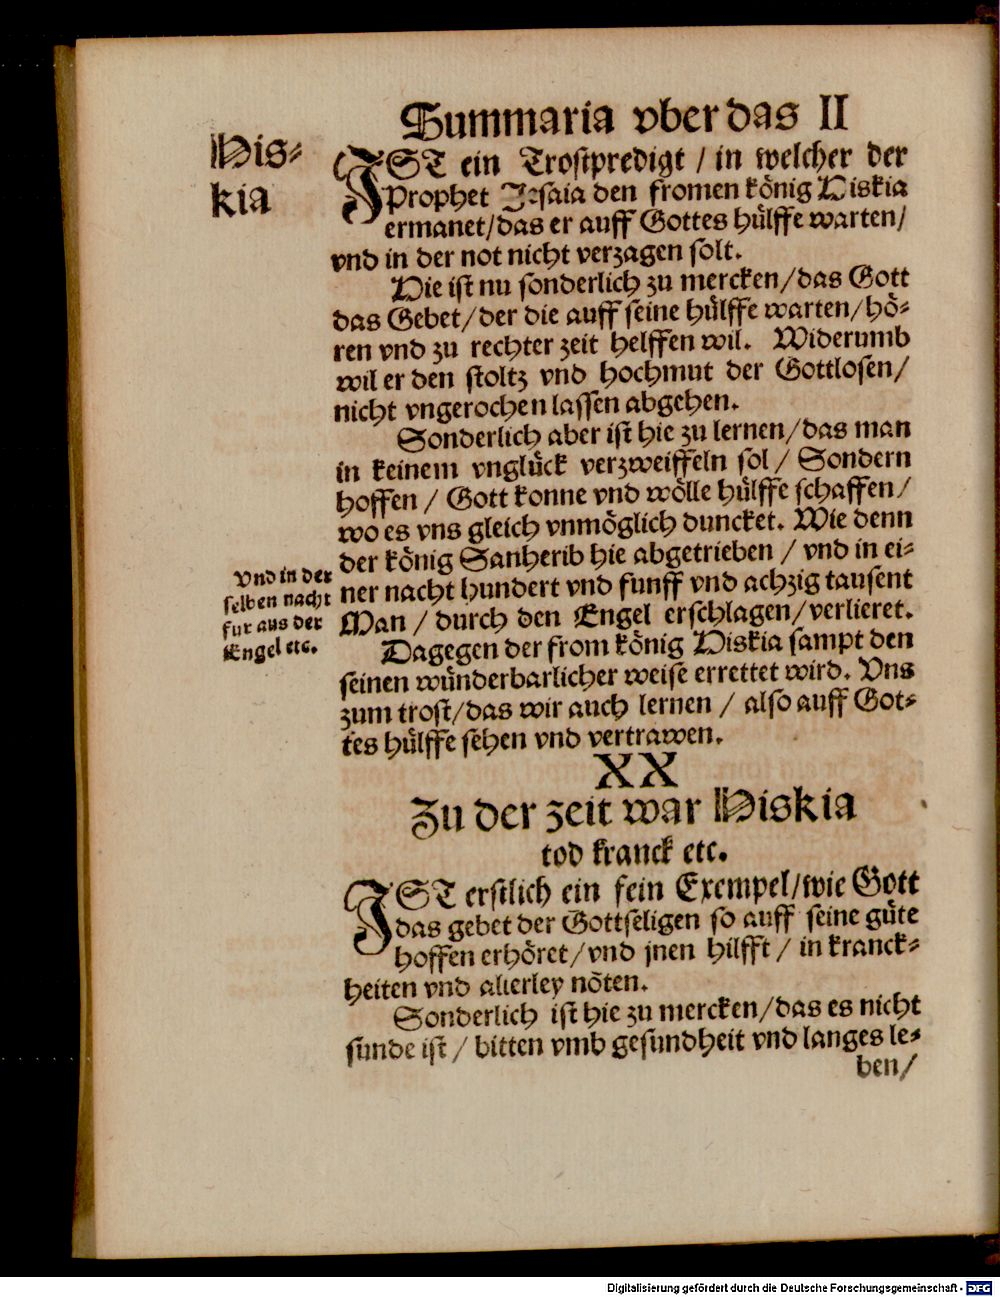 Summaria vber das II
His-
kia
IST ein Trostpredigt / in welcher der
Prophet Jesaia den fromen könig Hiskia
ermanet/das er auff Gottes hülffe warten/
vnd in der not nicht verzagen solt.
Hie ist nu sonderlich zu mercken/das Gott
das Gebet/der die auff seine hülffe warten/hö-
ren vnd zu rechter zeit helffen wil. Widerumb
wil er den stoltz vnd hochmut der Gottlosen/
nicht vngerochen lassen abgehen.
Sonderlich aber ist hie zu lernen/das man
in keinem vnglück verzweiffeln sol / Sondern
hoffen / Gott konne vnd wölle hülffe schaffen/
wo es vns gleich vnmöglich duncket. Wie denn
der könig Sanherib hie abgetrieben / vnd in ei-
ner nacht hundert vnd funff vnd achzig tausent
Man / durch den Engel erschlagen/verlieret.
vnd in der
selben nacht
fur aus der
Engel etc.
Dagegen der from könig Hiskia sampt den
seinen wünderbarlicher weise errettet wird. Vns
zum trost/das wir auch lernen / also auff Got-
tes hülffe sehen vnd vertrawen.
XX
Zu der zeit war Hiskia
tod kranck etc.
IST erstlich ein fein Exempel/wie Gott
das gebet der Gottseligen so auff seine güte
hoffen erhöret/vnd jnen hilfft / in kranck-
heiten vnd allerley nöten.
Sonderlich ist hie zu mercken/das es nicht
sunde ist / bitten vmb gesundheit vnd langes le-
ben/
Digitalisierung gefördert durch die Deutsche Forschungsgemeinschaft - DFG